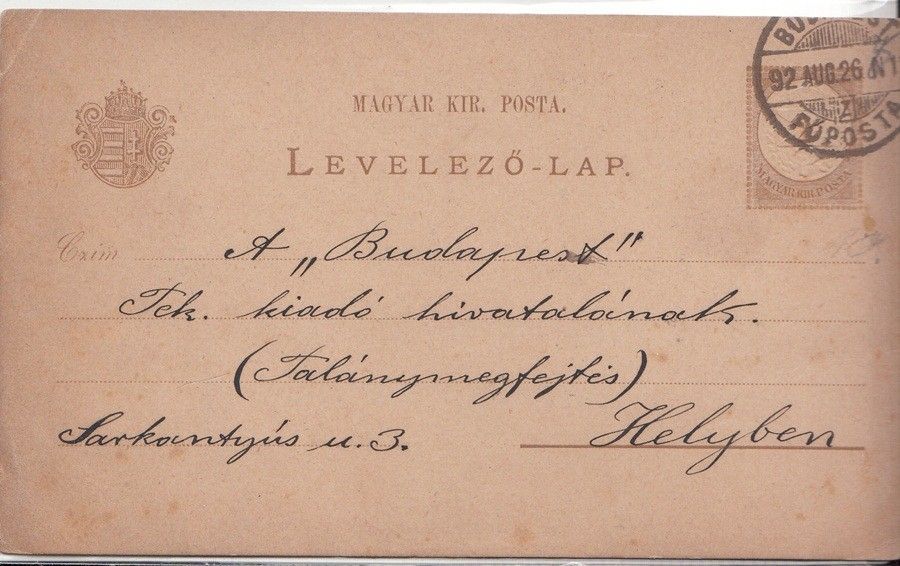 MAGYAR KIR. POSTA.
LEVELEZŐ-LAP.
92 AUG. 26
FŐPOSTA
MAGYAR KIR. POSTA
Czim
A „Budapest"
Tek. kiadó hivatalának.
(Talánymegfejtés)
Sarkantyús u. 3.
Helyben